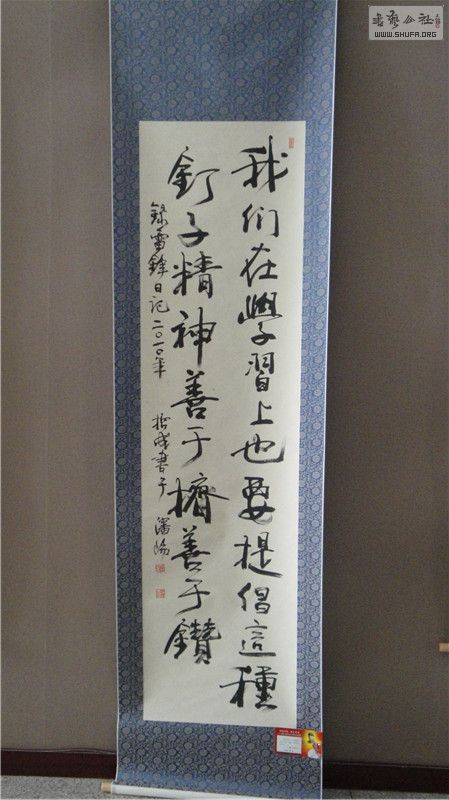 我们在學習上也要提倡這種
釘子精神善于擠善于鑽
錄雷鋒日記二〇一〇年 書于瀋陽
書藝公社
WWW.SHUFA.ORG